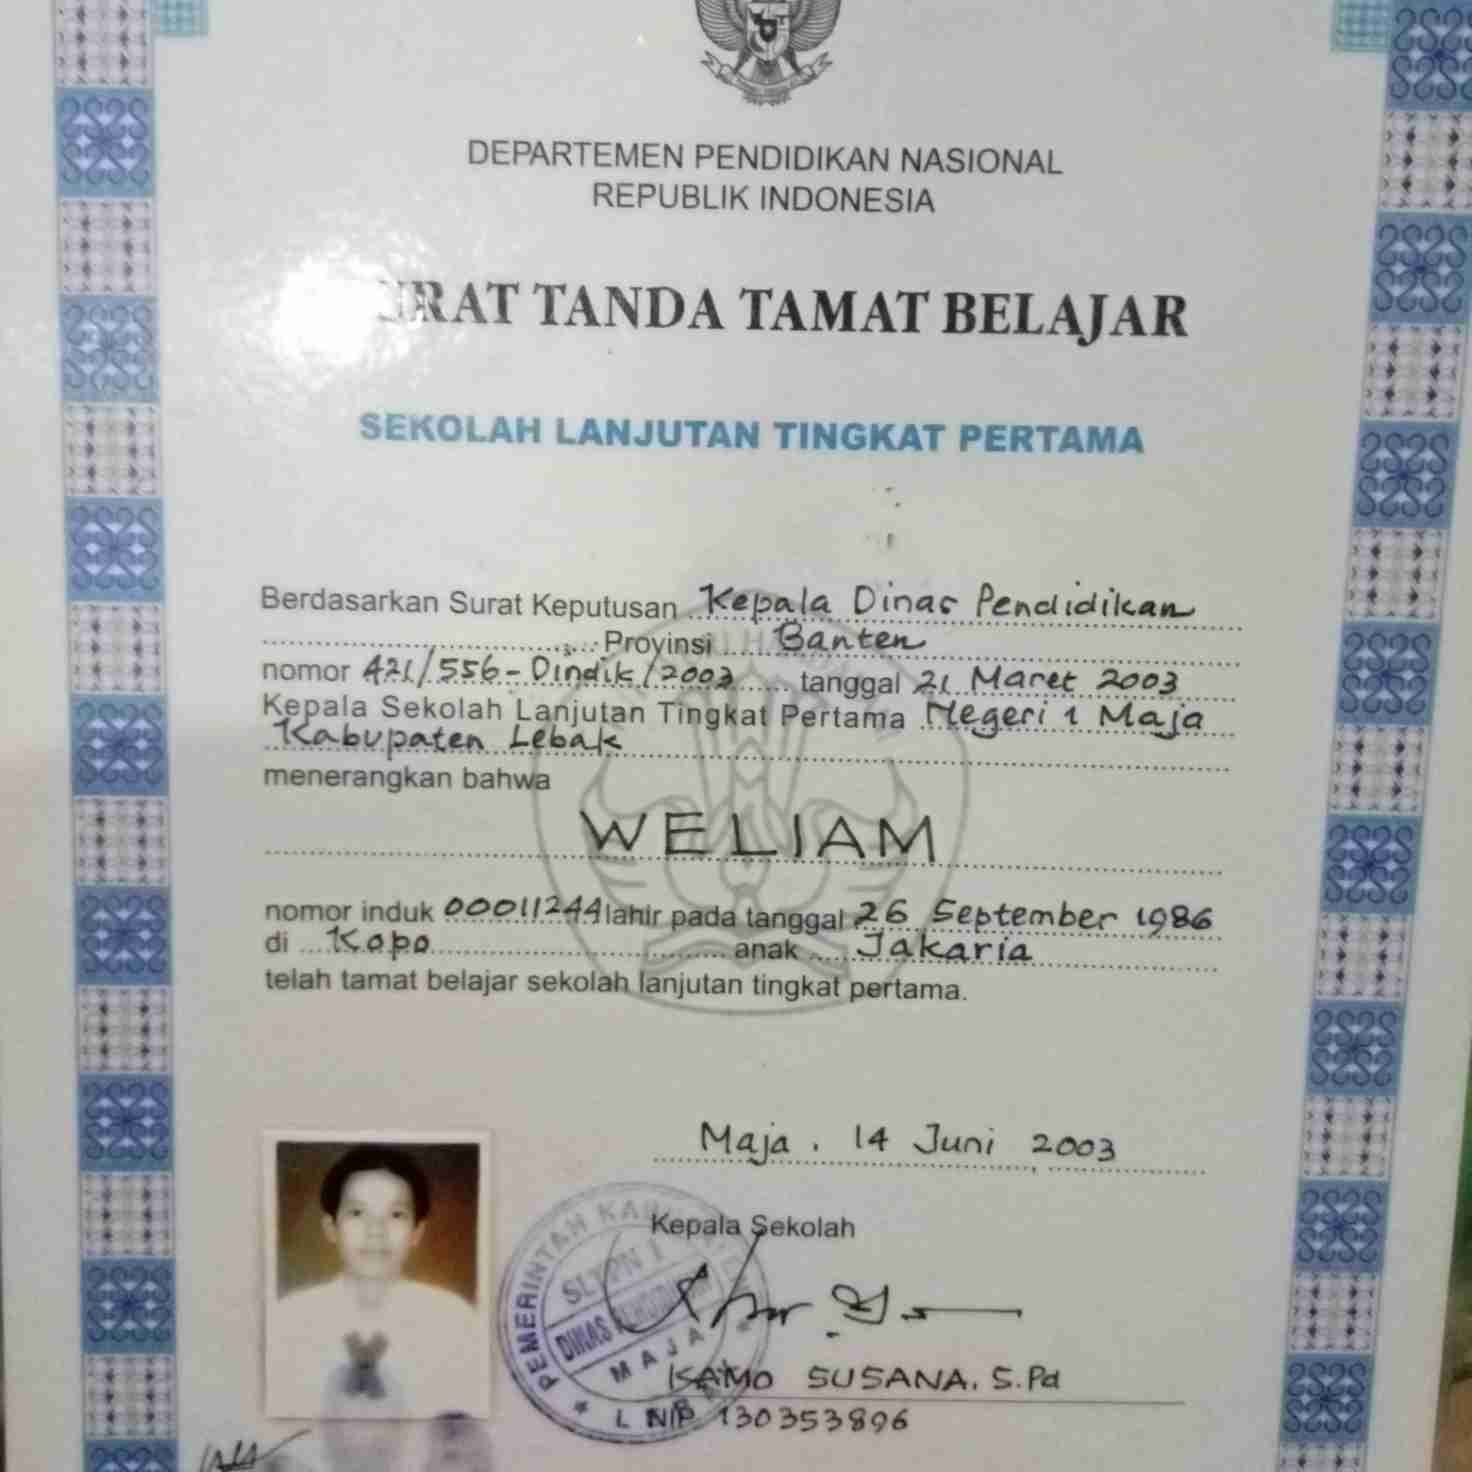 DEPARTEMEN PENDIDIKAN NASIONAL
REPUBLIK INDONESIA
SURAT TANDA TAMAT BELAJAR
SEKOLAH LANJUTAN TINGKAT PERTAMA
Berdasarkan Surat Keputusan Kepala Dinas Pendidikan
Provinsi Banten
nomor 421/556-Dindik/2003 tanggal 21 Maret 2003
Kepala Sekolah Lanjutan Tingkat Pertama Negeri 1 Maja
Kabupaten Lebak
menerangkan bahwa
WELIAM
nomor induk 00011244 lahir pada tanggal 26 September 1986
di Kopo anak Jakaria
telah tamat belajar sekolah lanjutan tingkat pertama.
Maja. 14 Juni 2003
Kepala Sekolah
PEMERINTAH
DINAS
MAJA
SUSANA, S.Pd
NIP 130353896